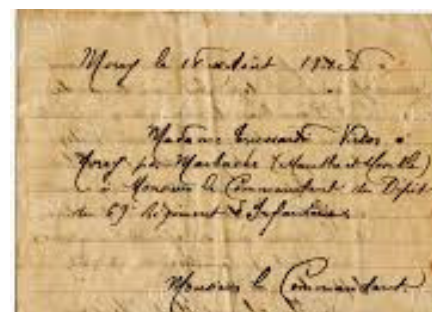 Morey le 18 Août
Madame Veuve
Morey par Marbache (Meurthe et Moselle)
à Monsieur le Commandant du Dépôt
du 69e Régiment d'Infanterie
Monsieur le Commandant